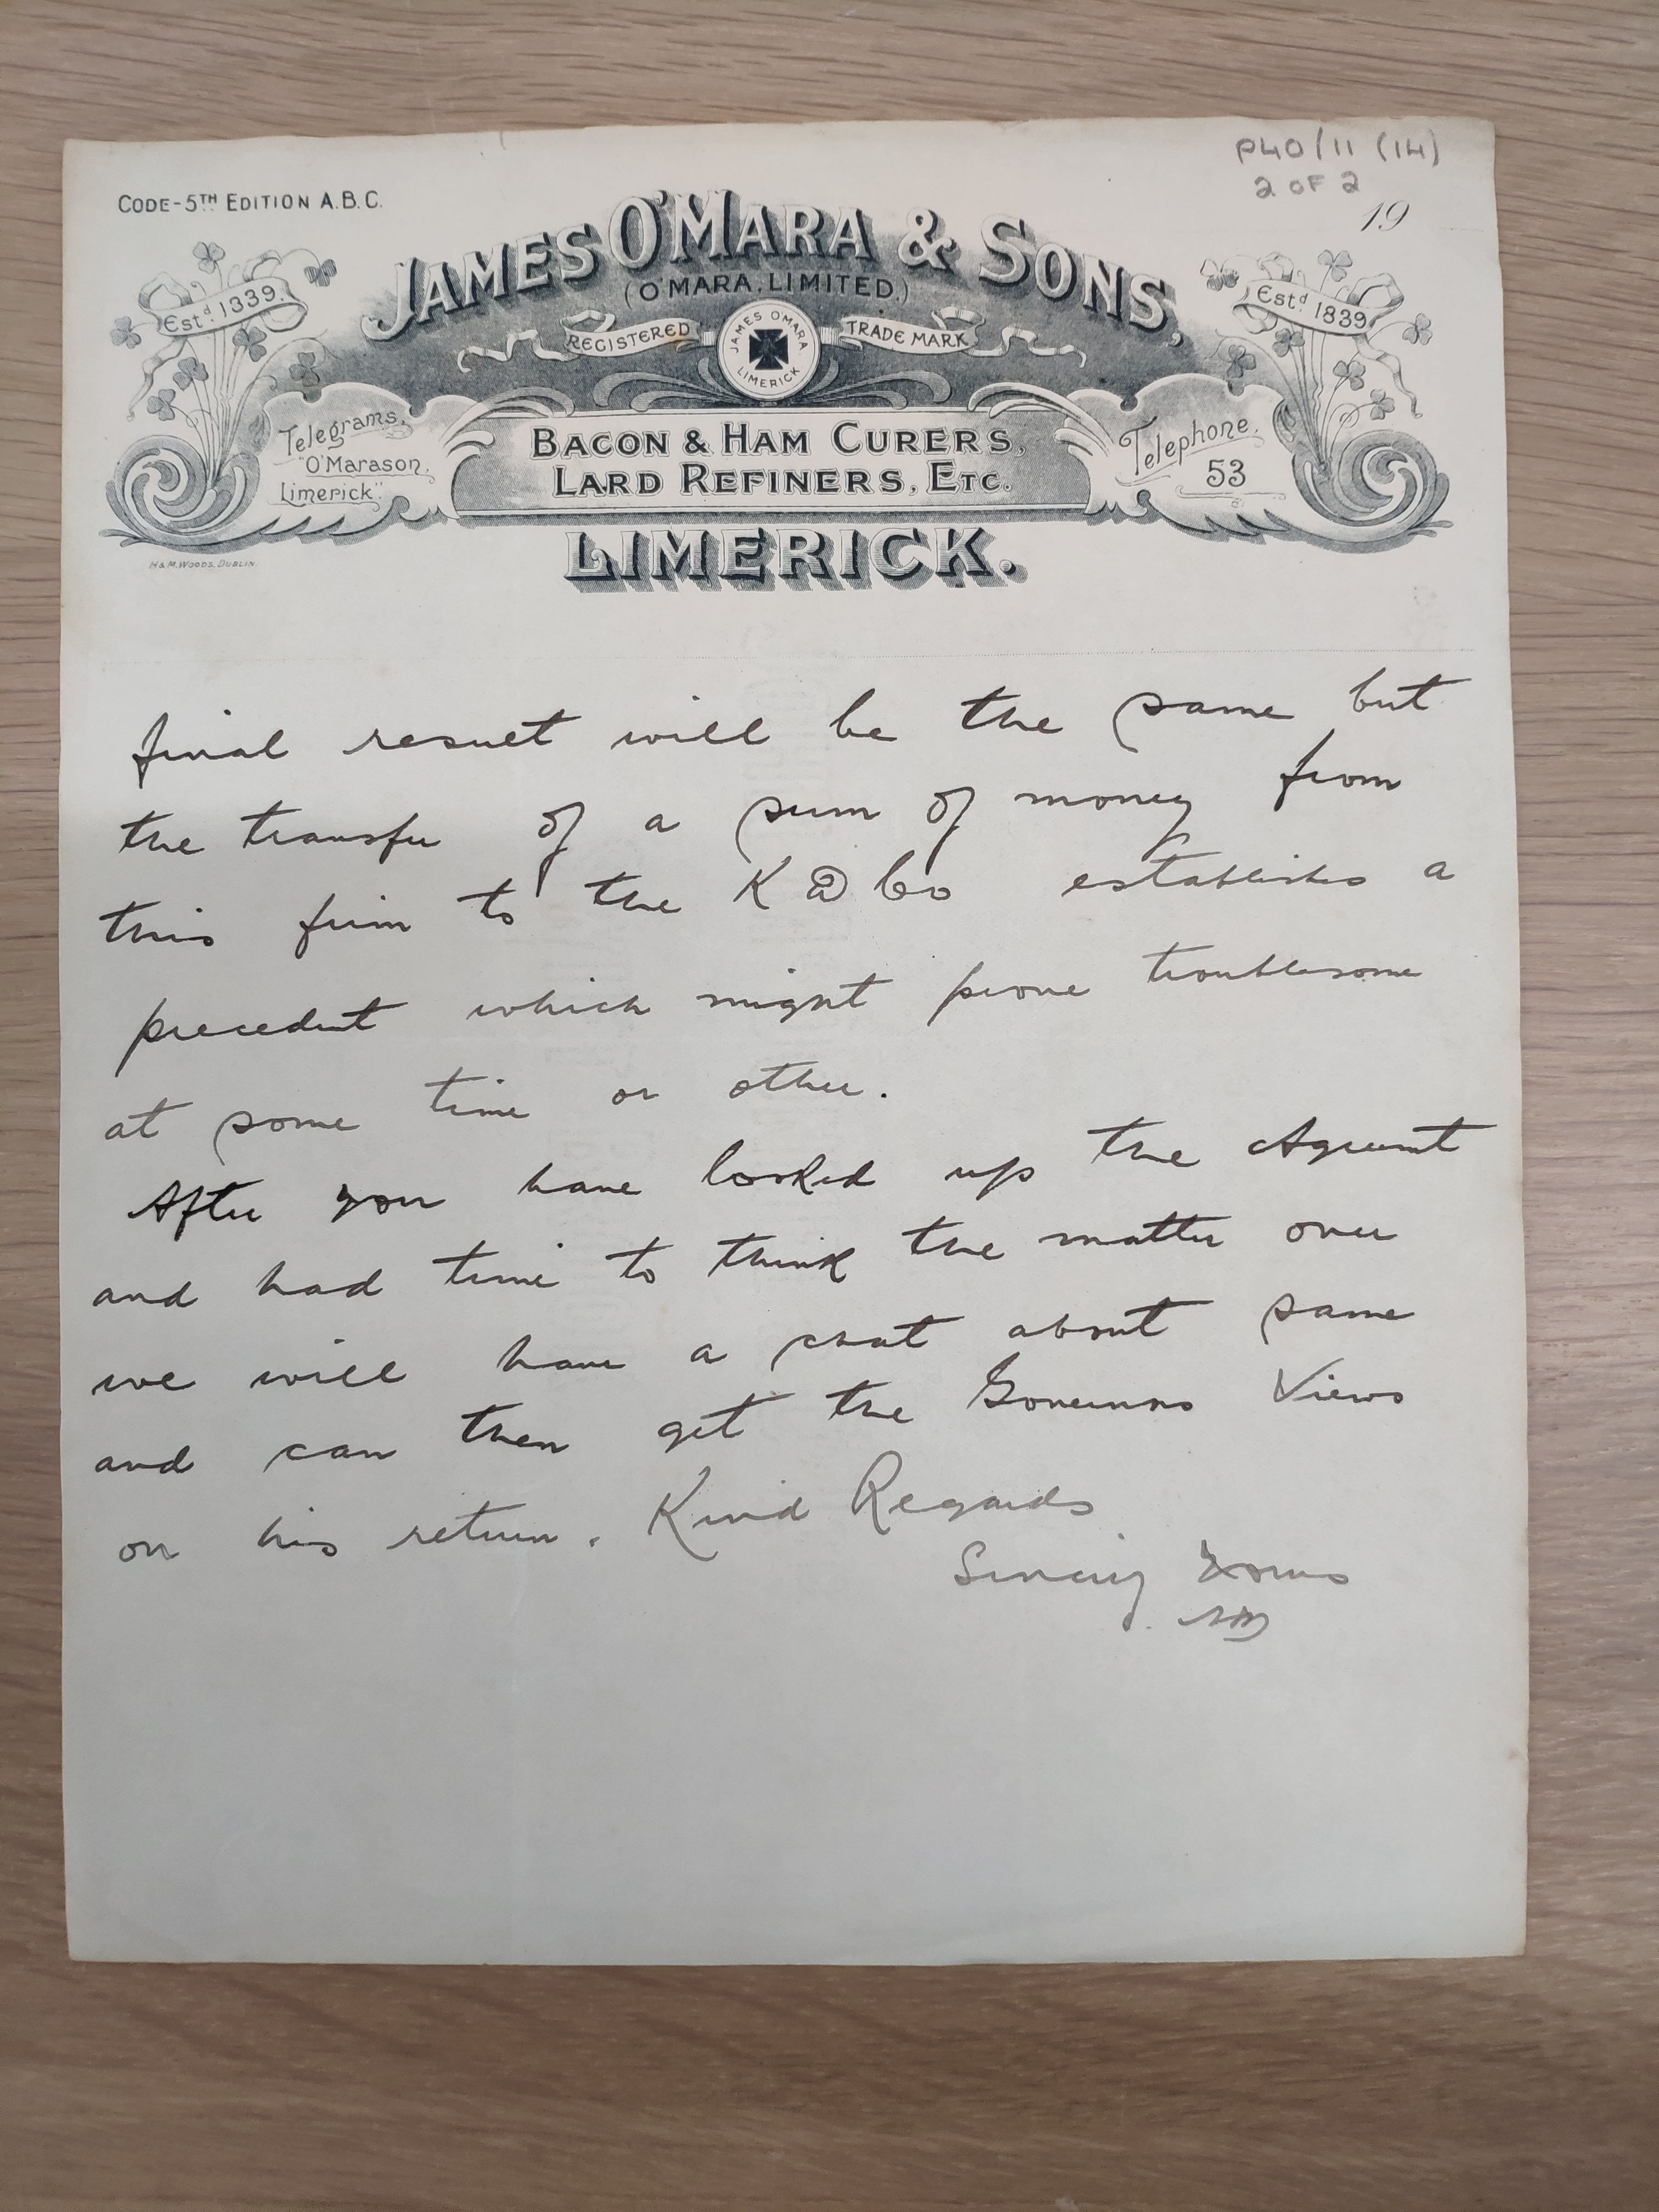 P40/11 (14)
2 OF 2
CODE-5TH EDITION A.B.C.
19
JAMES O'MARA & SONS,
(O'MARA, LIMITED.)
Estd. 1839.
Estd 1839
REGISTERED
TRADE MARK
JAMES O'MARA.
LIMERICK
Telegrams,
"O'Marason,
Limerick".
BACON & HAM CURERS,
LARD REFINERS, ETC.
Telephone.
53
LIMERICK.
H & M. WOODS, DUBLIN.
final result will be the same but
the transfer of a sum of money from
this firm to the K Co establishes a
precedent which might prove troublesome
at some time or other.
After you have looked up the Agreemt
and had time to think the matter over
we will have a chat about same
and can then get the Governors Views
on his return. Kind Regards
Sincerely Yours